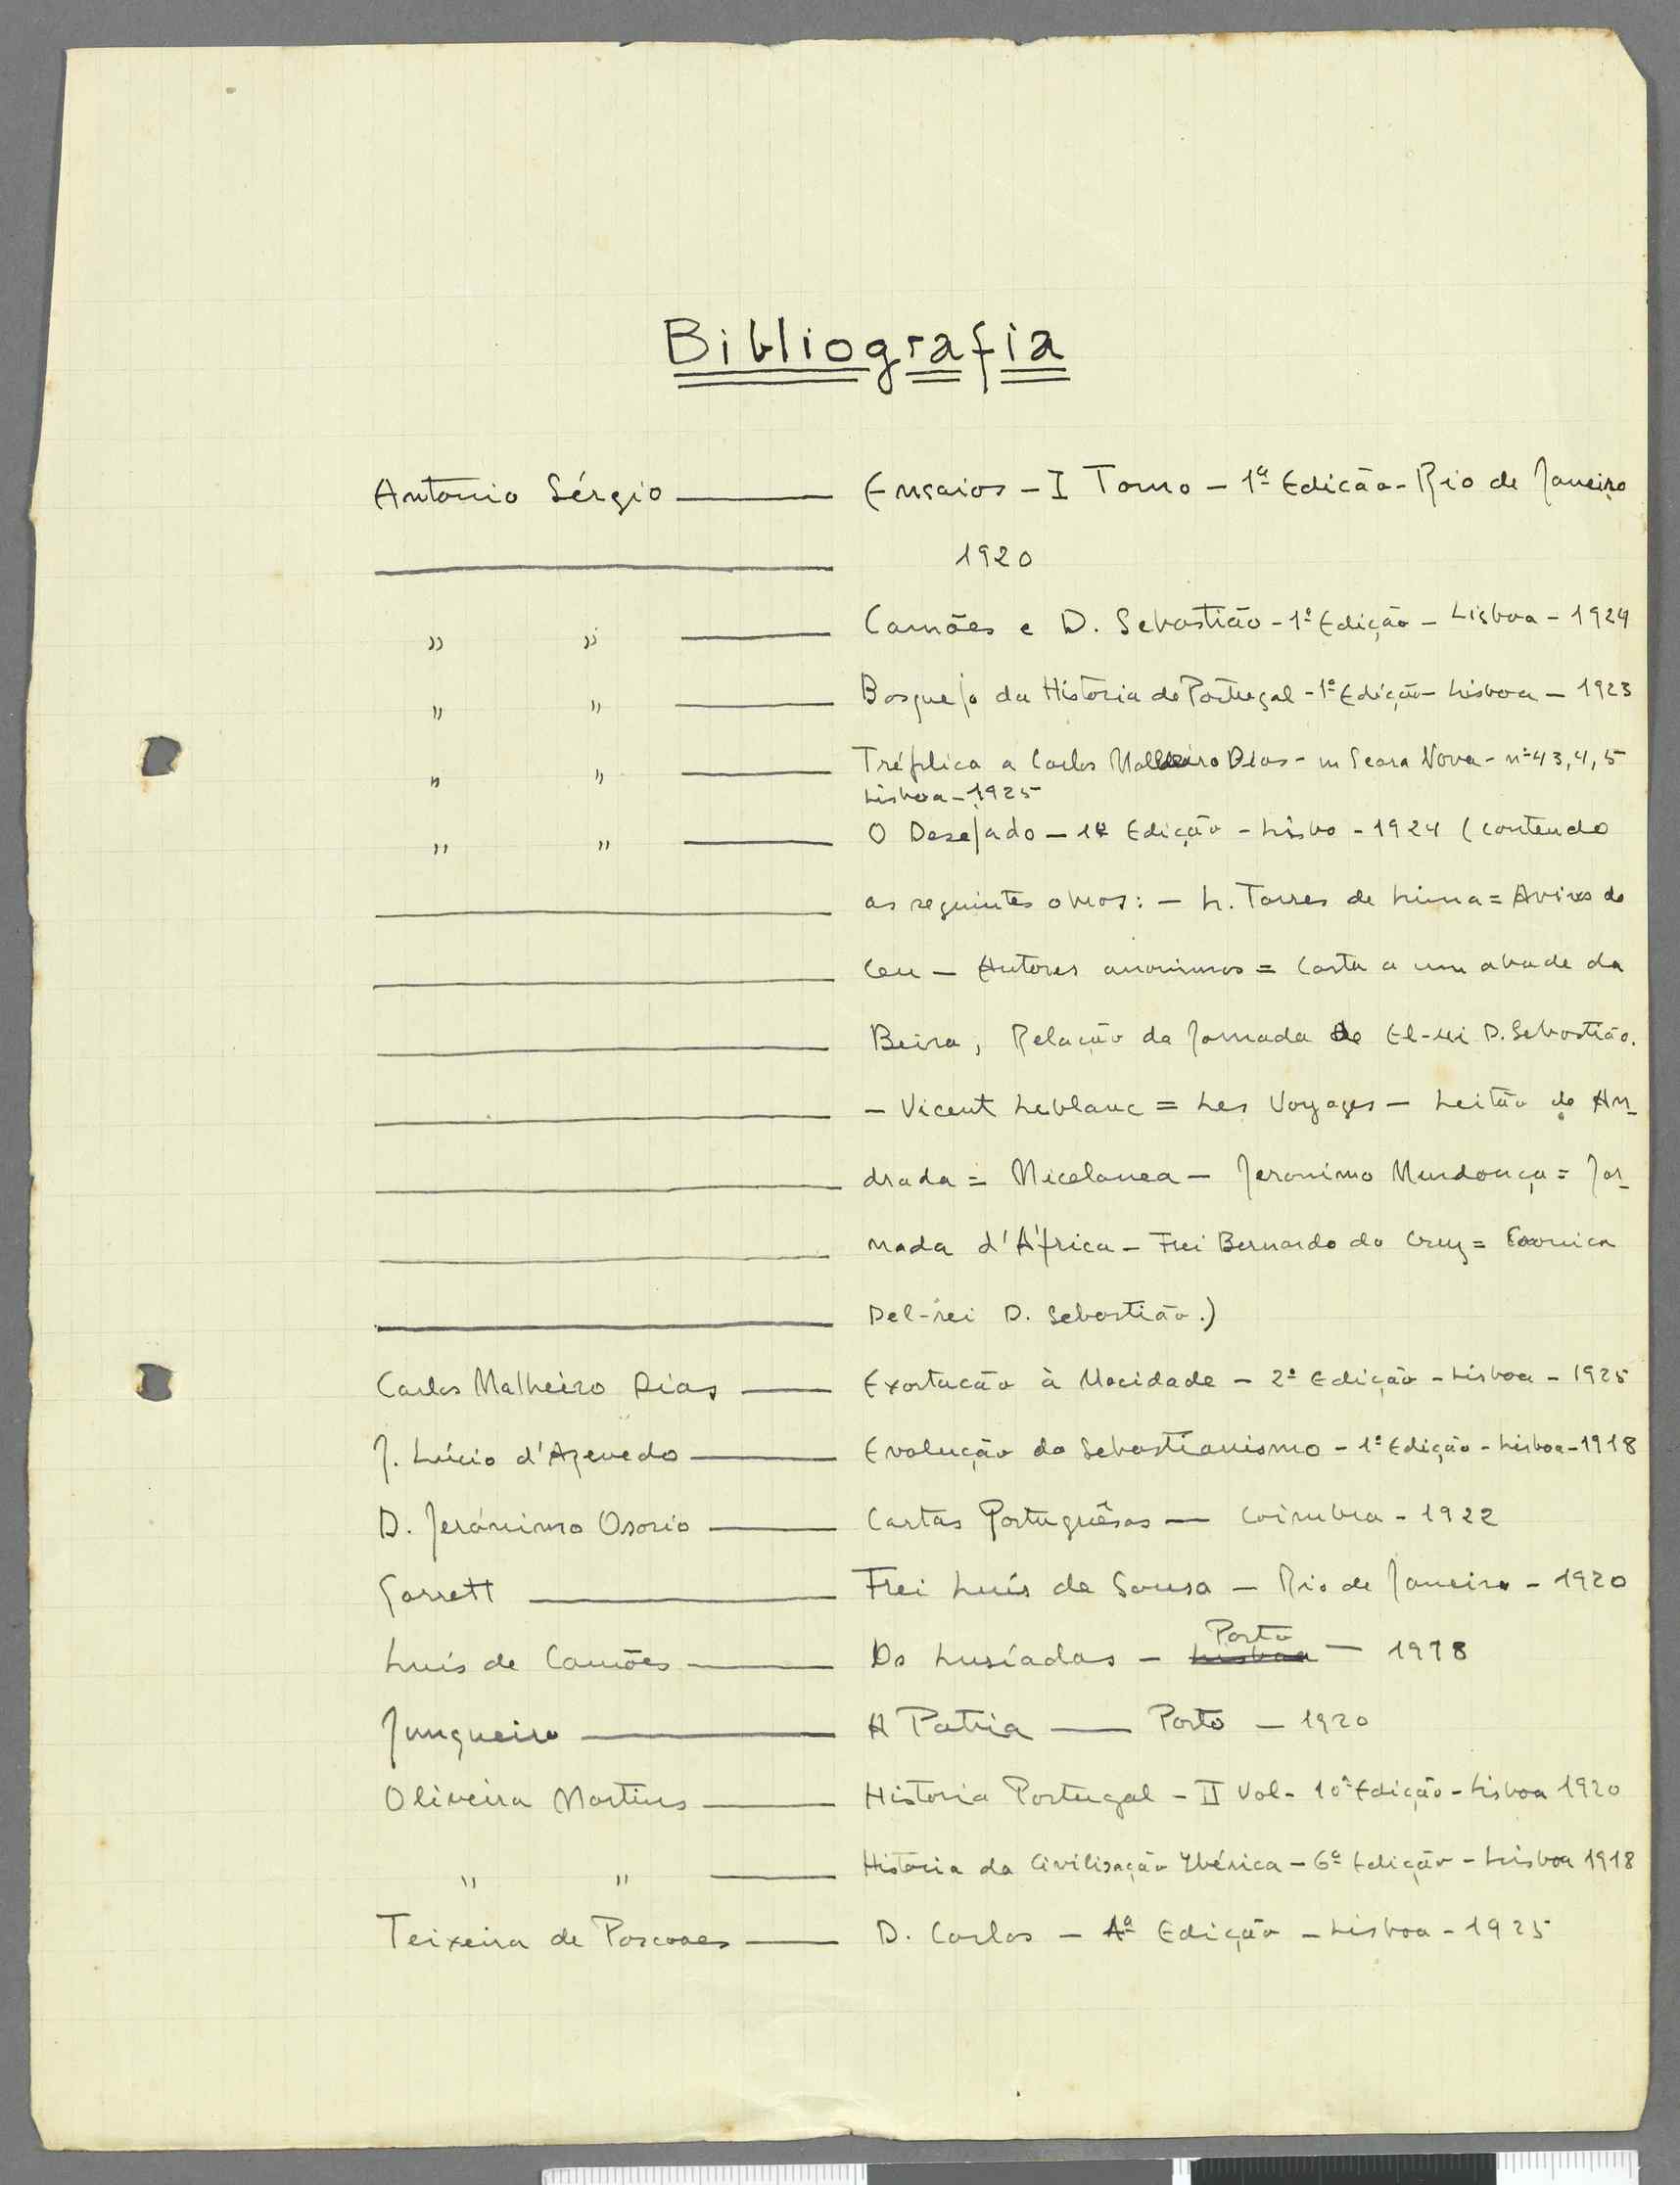 Bibliografia
António Sérgio — Ensaios - I Tomo - 1ª Edição - Rio de Janeiro
1920
" " — Camões e D. Sebastião - 1ª Edição - Lisboa - 1924
" " — Bosquejo da Historia de Portugal - 1ª Edição - Lisboa - 1923
" " — Tréplica a Carlos Malheiro Dias - in Seara Nova - nº 43, 4, 5
Lisboa - 1925
" " — O Desejado - 1ª Edição - Lisbo - 1924 (contendo
as seguintes obras: - L. Torres de Lima = Avisos do
Ceu - Autores anonimos = Carta a um abade da
Beira, Relação da Jornada de El-rei D. Sebastião.
- Vicent Leblanc = Les Voyages - Leitão de An-
drada = Micelanea - Jeronimo Mendonça = Jor-
nada d'África - Frei Bernardo da Cruz = Cronica
Del-rei D. Sebastião.)
Carlos Malheiro Dias — Exortacão à Mocidade - 2ª Edição - Lisboa - 1925
J. Lúcio d'Azevedo — Evolução do Sebastianismo - 1ª Edição - Lisboa - 1918
D. Jerónimo Osorio — Cartas Portuguêsas — Coimbra - 1922
Garrett — Frei Luís de Sousa - Rio de Janeiro - 1920
Luís de Camões — Os Lusíadas - Lisboa Porto - 1918
Junqueiro — A Patria — Porto - 1920
Oliveira Martins — Historia Portugal - II Vol - 10ª Edição - Lisboa 1920
" " — Historia da Civilisação Ybérica - 6ª Edição - Lisboa 1918
Teixeira de Pascoaes — D. Carlos - 1ª Edição - Lisboa - 1925